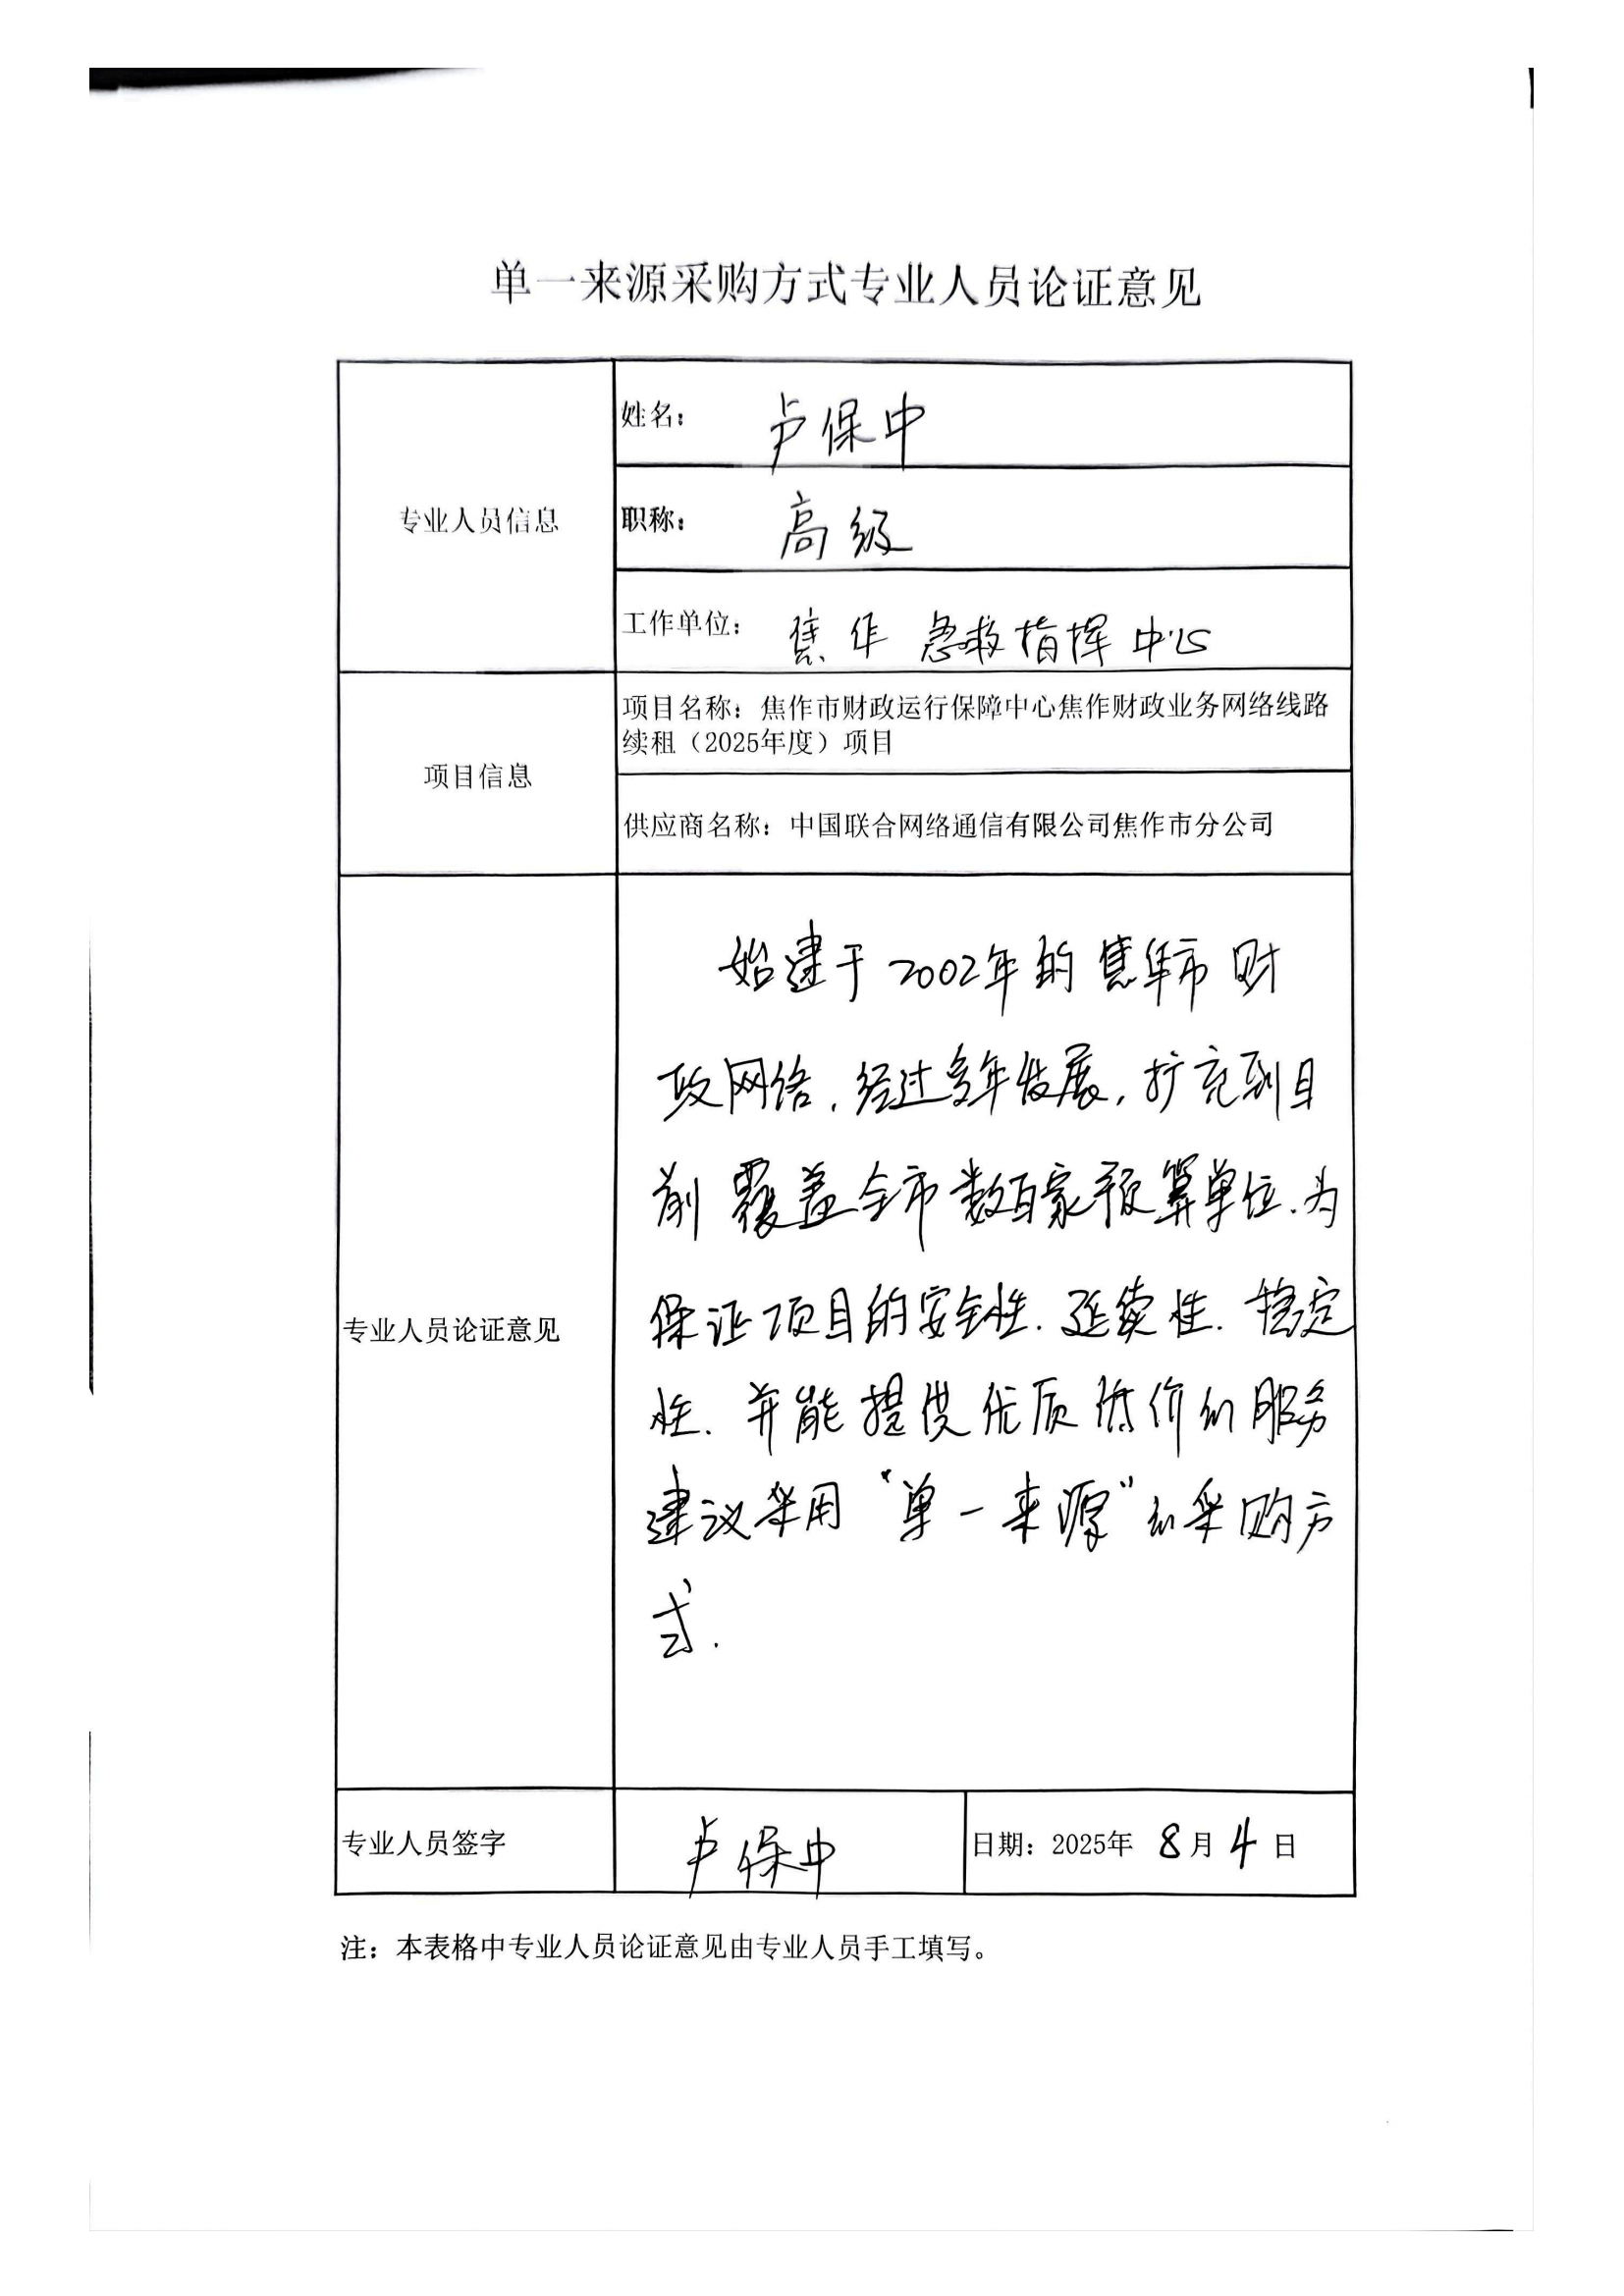 单一来源采购方式专业人员论证意见
专业人员信息
姓名：卢保中
职称：高级
工作单位：焦作急救指挥中心
项目信息
项目名称：焦作市财政运行保障中心焦作财政业务网络线路
续租（2025年度）项目
供应商名称：中国联合网络通信有限公司焦作市分公司
专业人员论证意见
始建于2002年的焦作市财
政网络，经过多年发展，扩充到目
前覆盖全市数百家预算单位.为
保证项目的安全性.延续性.稳定
性.并能提供优质低价的服务
建议采用“单一来源”的采购方
式.
专业人员签字
卢保中
日期：2025年8月4日
注：本表格中专业人员论证意见由专业人员手工填写。